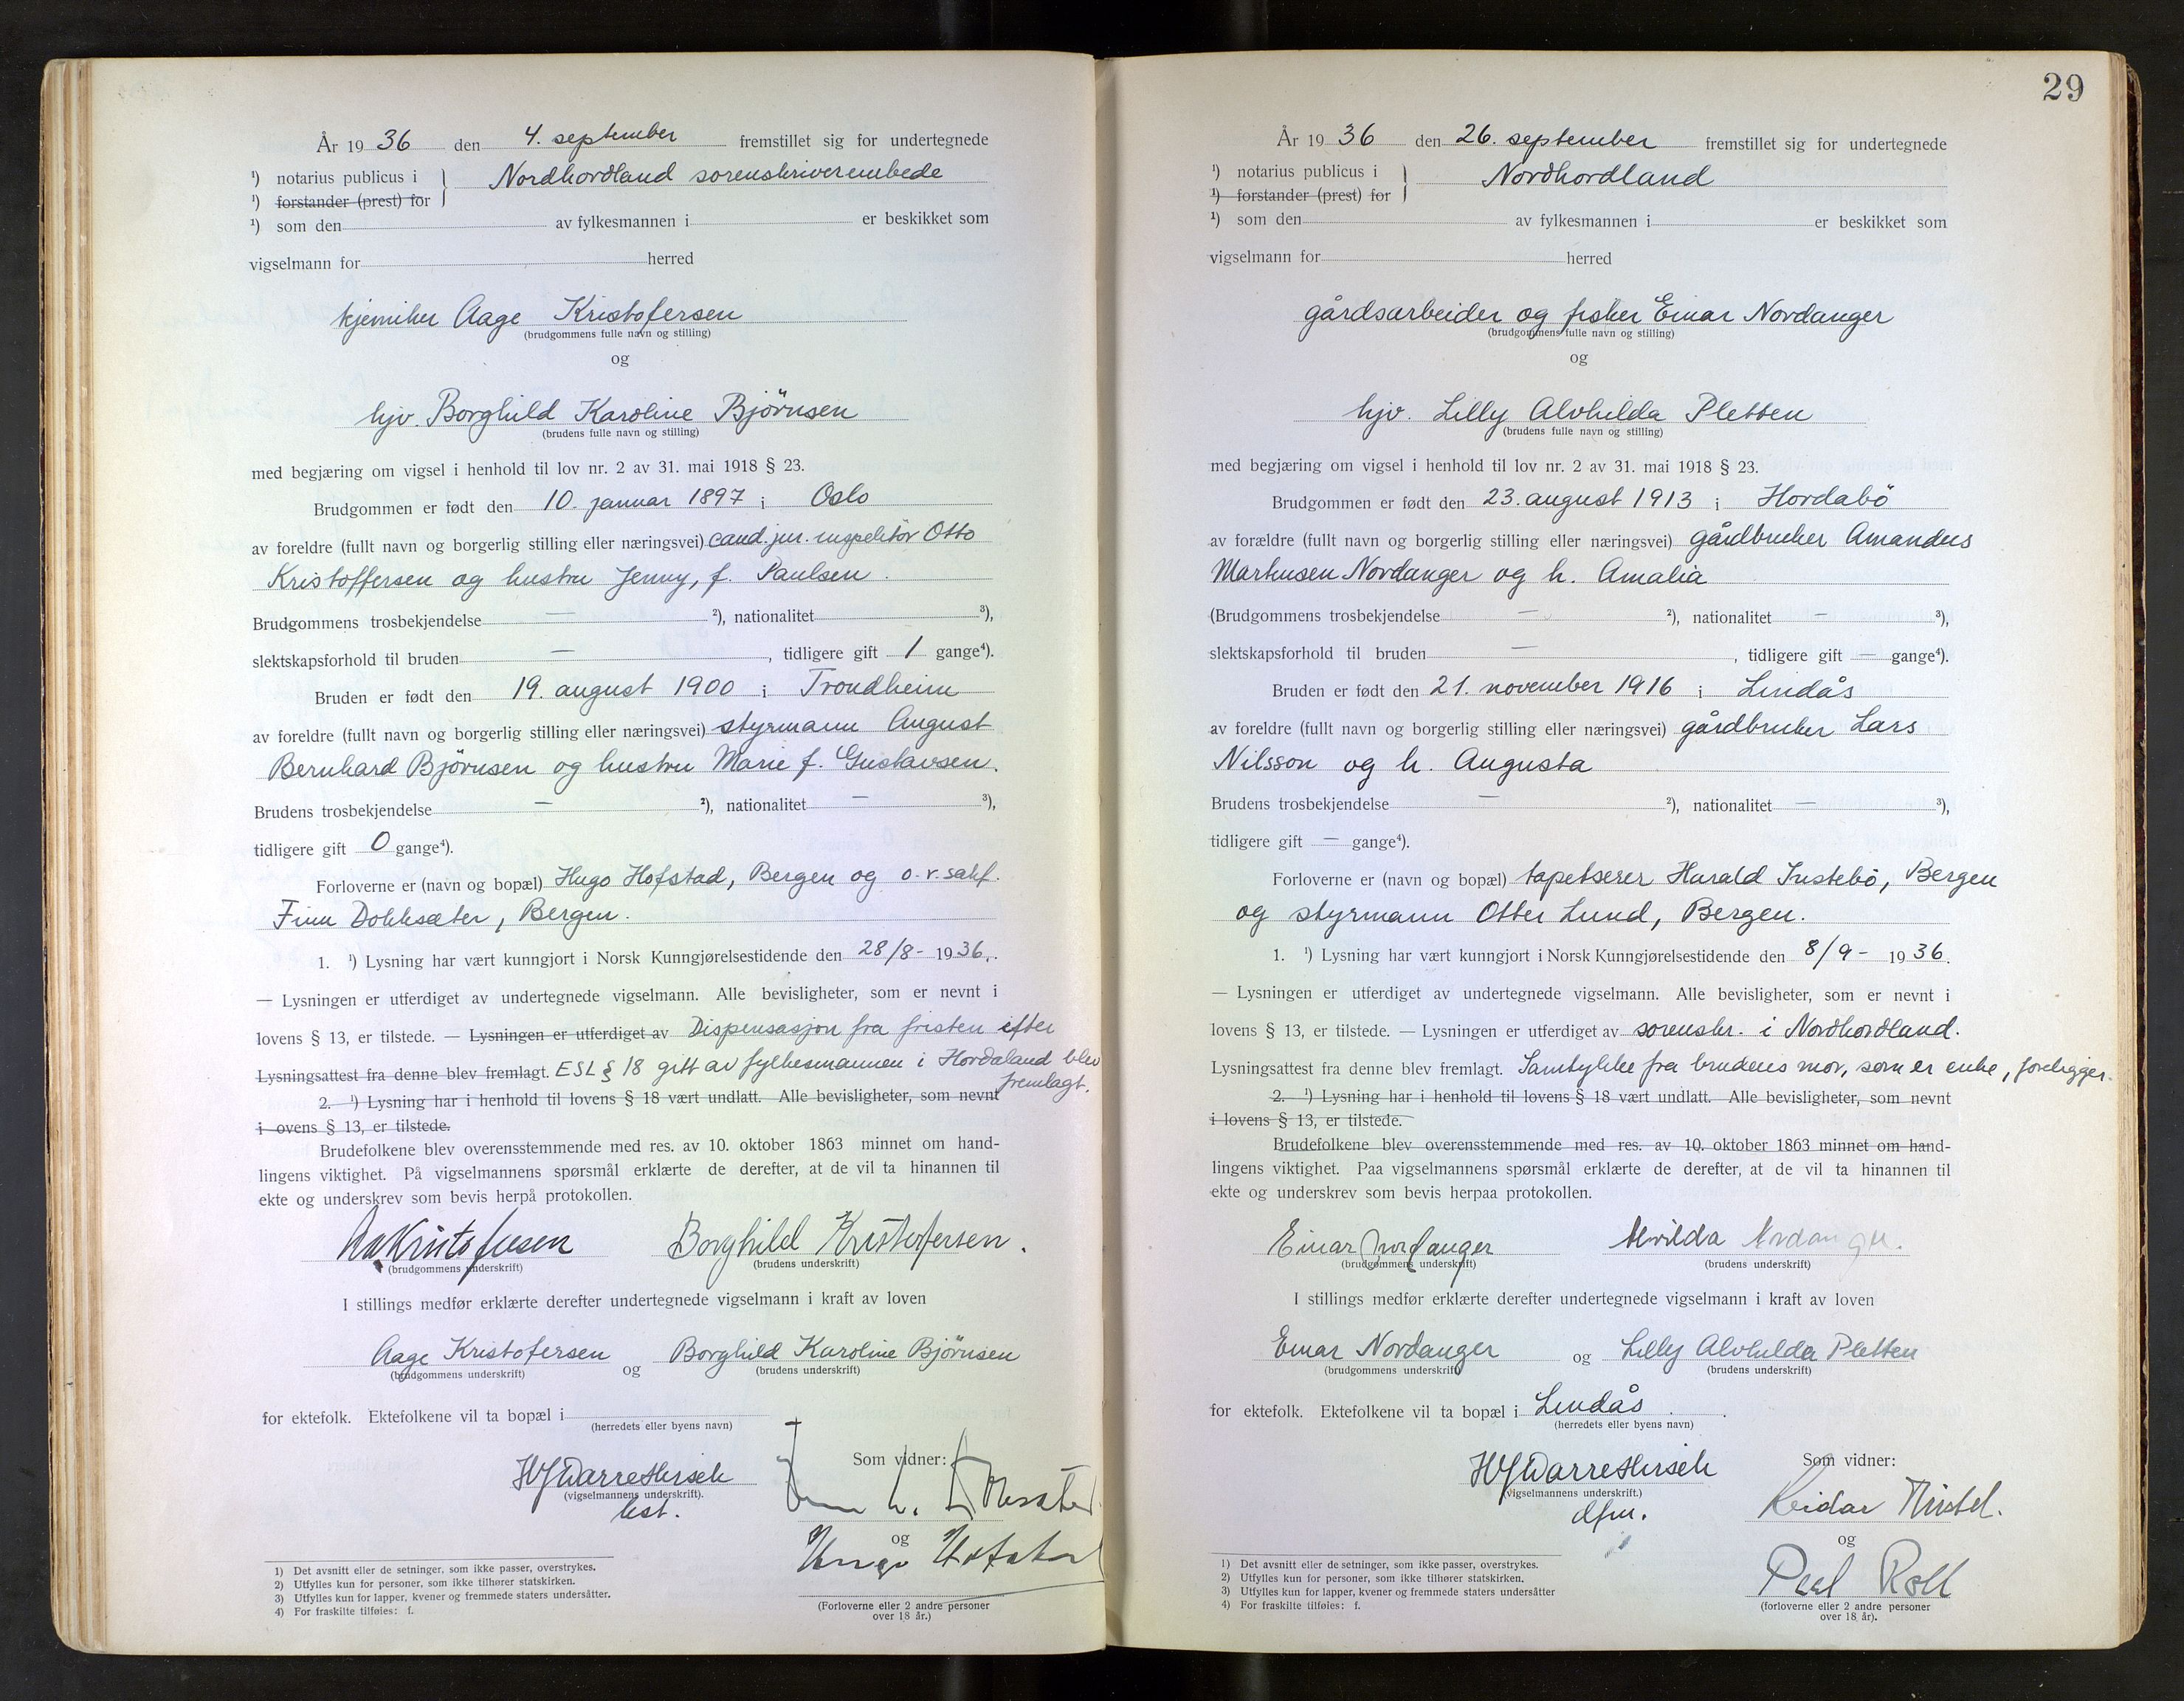 År 19 36 den 4. september fremstillet sig for undertegnede
¹) notarius publicus i } Nordhordland sorenskriverembede
¹) forstander (prest) for
¹) som den av fylkesmannen i er beskikket som
vigselmann for herred
kjemiker Aage Kristofersen
(brudgommens fulle navn og stilling)
og
hjv. Borghild Karoline Björnsen
(brudens fulle navn og stilling)
med begjæring om vigsel i henhold til lov nr. 2 av 31. mai 1918 § 23.
Brudgommen er født den 10. januar 1897 i Oslo
av foreldre (fullt navn og borgerlig stilling eller næringsvei) cand. jur. inspektör Otto
Kristoffersen og hustru Jenny, f. Paulsen.
Brudgommens trosbekjendelse — ²), nationalitet ³),
slektskapsforhold til bruden — , tidligere gift 1 gange⁴).
Bruden er født den 19. august 1900 i Trondheim
av foreldre (fullt navn og borgerlig stilling eller næringsvei) styrmann August
Bernhard Björnsen og hustru Marie f. Gustavsen.
Brudens trosbekjendelse — ²), nationalitet — ³),
tidligere gift 0 gange⁴).
Forloverne er (navn og bopæl) Hugo Hofstad, Bergen og o.r.sakf.
Finn Dokksæter, Bergen.
1. ¹) Lysning har vært kunngjort i Norsk Kunngjørelsestidende den 28/8- 1936.
— Lysningen er utferdiget av undertegnede vigselmann. Alle bevisligheter, som er nevnt i
lovens § 13, er tilstede. — Lysningen er utferdiget av Dispensasjon fra fristen efter
Lysningsattest fra denne blev fremlagt. ESL § 18 gitt av fylkesmannen i Hordaland blev
fremlagt.
2. ¹) Lysning har i henhold til lovens § 18 vært undlatt. Alle bevisligheter, som nevnt
i ovens § 13, er tilstede.
Brudefolkene blev overensstemmende med res. av 10. oktober 1863 minnet om hand-
lingens viktighet. På vigselmannens spørsmål erklærte de derefter, at de vil ta hinannen til
ekte og underskrev som bevis herpå protokollen.
Aa Kristofersen Borghild Kristofersen.
(brudgommens underskrift) (brudens underskrift)
I stillings medfør erklærte derefter undertegnede vigselmann i kraft av loven
Aage Kristofersen og Borghild Karoline Björnsen
(brudgommens underskrift) (brudens underskrift)
for ektefolk. Ektefolkene vil ta bopæl i
(herredets eller byens navn)
Som vidner:
HJ Darre Hirsch
(vigselmannens underskrift).
og
Hugo Hofstad
(Forloverne eller 2 andre personer
over 18 år.)
1) Det avsnitt eller de setninger, som ikke passer, overstrykes.
2) Utfylles kun for personer, som ikke tilhører statskirken.
3) Utfylles kun for lapper, kvener og fremmede staters undersåtter.
4) For fraskilte tilføies: f.
29
År 19 36 den 26. september fremstillet sig for undertegnede
¹) notarius publicus i } Nordhordland
¹) forstander (prest) for
¹) som den av fylkesmannen i er beskikket som
vigselmann for herred
gårdsarbeider og fisker Einar Nordanger
(brudgommens fulle navn og stilling)
og
hjv. Lilly Alvhilda Pletten
(brudens fulle navn og stilling)
med begjæring om vigsel i henhold til lov nr. 2 av 31. mai 1918 § 23.
Brudgommen er født den 23. august 1913 i Hordabö
av forældre (fullt navn og borgerlig stilling eller næringsvei) gårdbruker Amandus
Martinsen Nordanger og h. Amalia
(Brudgommens trosbekjendelse — ²), nationalitet — ³),
slektskapsforhold til bruden — , tidligere gift — gange⁴).
Bruden er født den 21. november 1916 i Lindås
av foreldre (fullt navn og borgerlig stilling eller næringsvei) gårdbruker Lars
Nilsson og h. Augusta
Brudens trosbekjendelse — ²), nationalitet — ³),
tidligere gift — gange⁴).
Forloverne er (navn og bopæl) tapetserer Harald Instebö, Bergen
og styrmann Otter Lund, Bergen.
1. ¹) Lysning har vært kunngjort i Norsk Kunngjørelsestidende den 8/9- 1936.
— Lysningen er utferdiget av undertegnede vigselmann. Alle bevisligheter, som er nevnt i
lovens § 13, er tilstede. — Lysningen er utferdiget av sorenskr. i Nordhordland.
Lysningsattest fra denne blev fremlagt. Samtykke fra brudens mor, som er enke, foreligger.
2. ¹) Lysning har i henhold til lovens § 18 vært undlatt. Alle bevisligheter, som nevnt
i lovens § 13, er tilstede.
Brudefolkene blev overensstemmende med res. av 10. oktober 1863 minnet om hand-
lingens viktighet. Paa vigselmannens spørsmål erklærte de derefter, at de vil ta hinannen til
ekte og underskrev som bevis herpaa protokollen.
Einar Nordanger Alvilda Nordanger.
(brudgommens underskrift) (brudens underskrift)
I stillings medfør erklærte derefter undertegnede vigselmann i kraft av loven
Einar Nordanger og Lilly Alvhilda Pletten
(brudgommens underskrift) (brudens underskrift)
for ektefolk. Ektefolkene vil ta bopæl i Lindås.
(herredets eller byens navn)
Som vidner:
HJ Darre Hirsch
(vigselmannens underskrift.)
dfm.
Reidar
og
Roll
(forloverne eller 2 andre personer
over 18 år).
1) Det avsnitt eller de setninger, som ikke passer, overstrykes.
2) Utfylles kun for personer, som ikke tilhører statskirken.
3) Utfylles kun for lapper, kvener og fremmede staters undersåtter
4) For fraskilte tilføies: f.